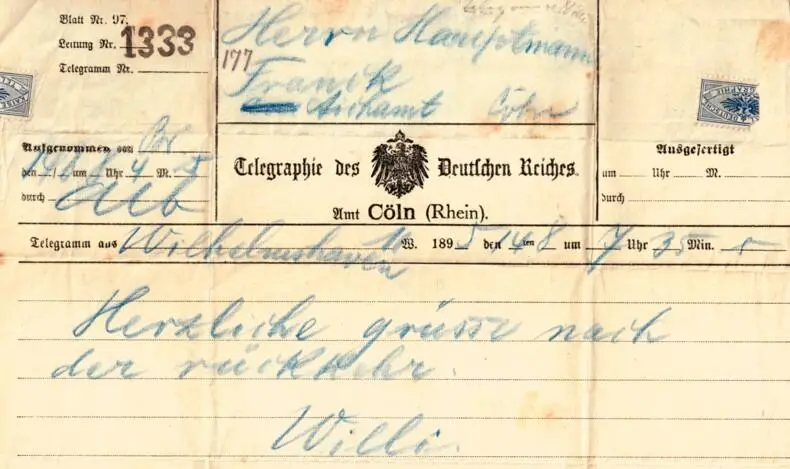 Blatt Nr. 97.
Leitung Nr. 1333
Telegramm Nr.
177
Herrn Hauptmann
Franck
Aichamt Cöln
Aufgenommen von
den um Uhr 4 M. 5
durch Alb
Telegraphie des Deutschen Reiches.
Amt Cöln (Rhein).
Ausgefertigt
um Uhr M.
durch
Telegramm aus Wilhelmshaven W. 1895 den 14ten 8 um 7 Uhr 35 Min.
Herzliche grüsse nach
der rückkehr.
Willi.